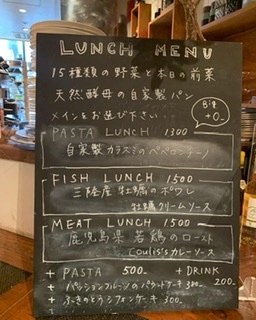 LUNCH MENU
15種類の野菜と本日の前菜
天然酵母の自家製パン
メインをお選び下さい・・
PASTA LUNCH 1300
自家製カラスミのペペロンチーノ
FISH LUNCH 1500
三陸産 牡蠣のポワレ
牡蠣クリームソース
MEAT LUNCH 1500
鹿児島県 若鶏のロースト
Coulis'sカレーソース
+ PASTA 500-
+ DRINK 200-
+ パッションフルーツのパウンドケーキ 300-
+ ふきのとうシフォンケーキ 300-